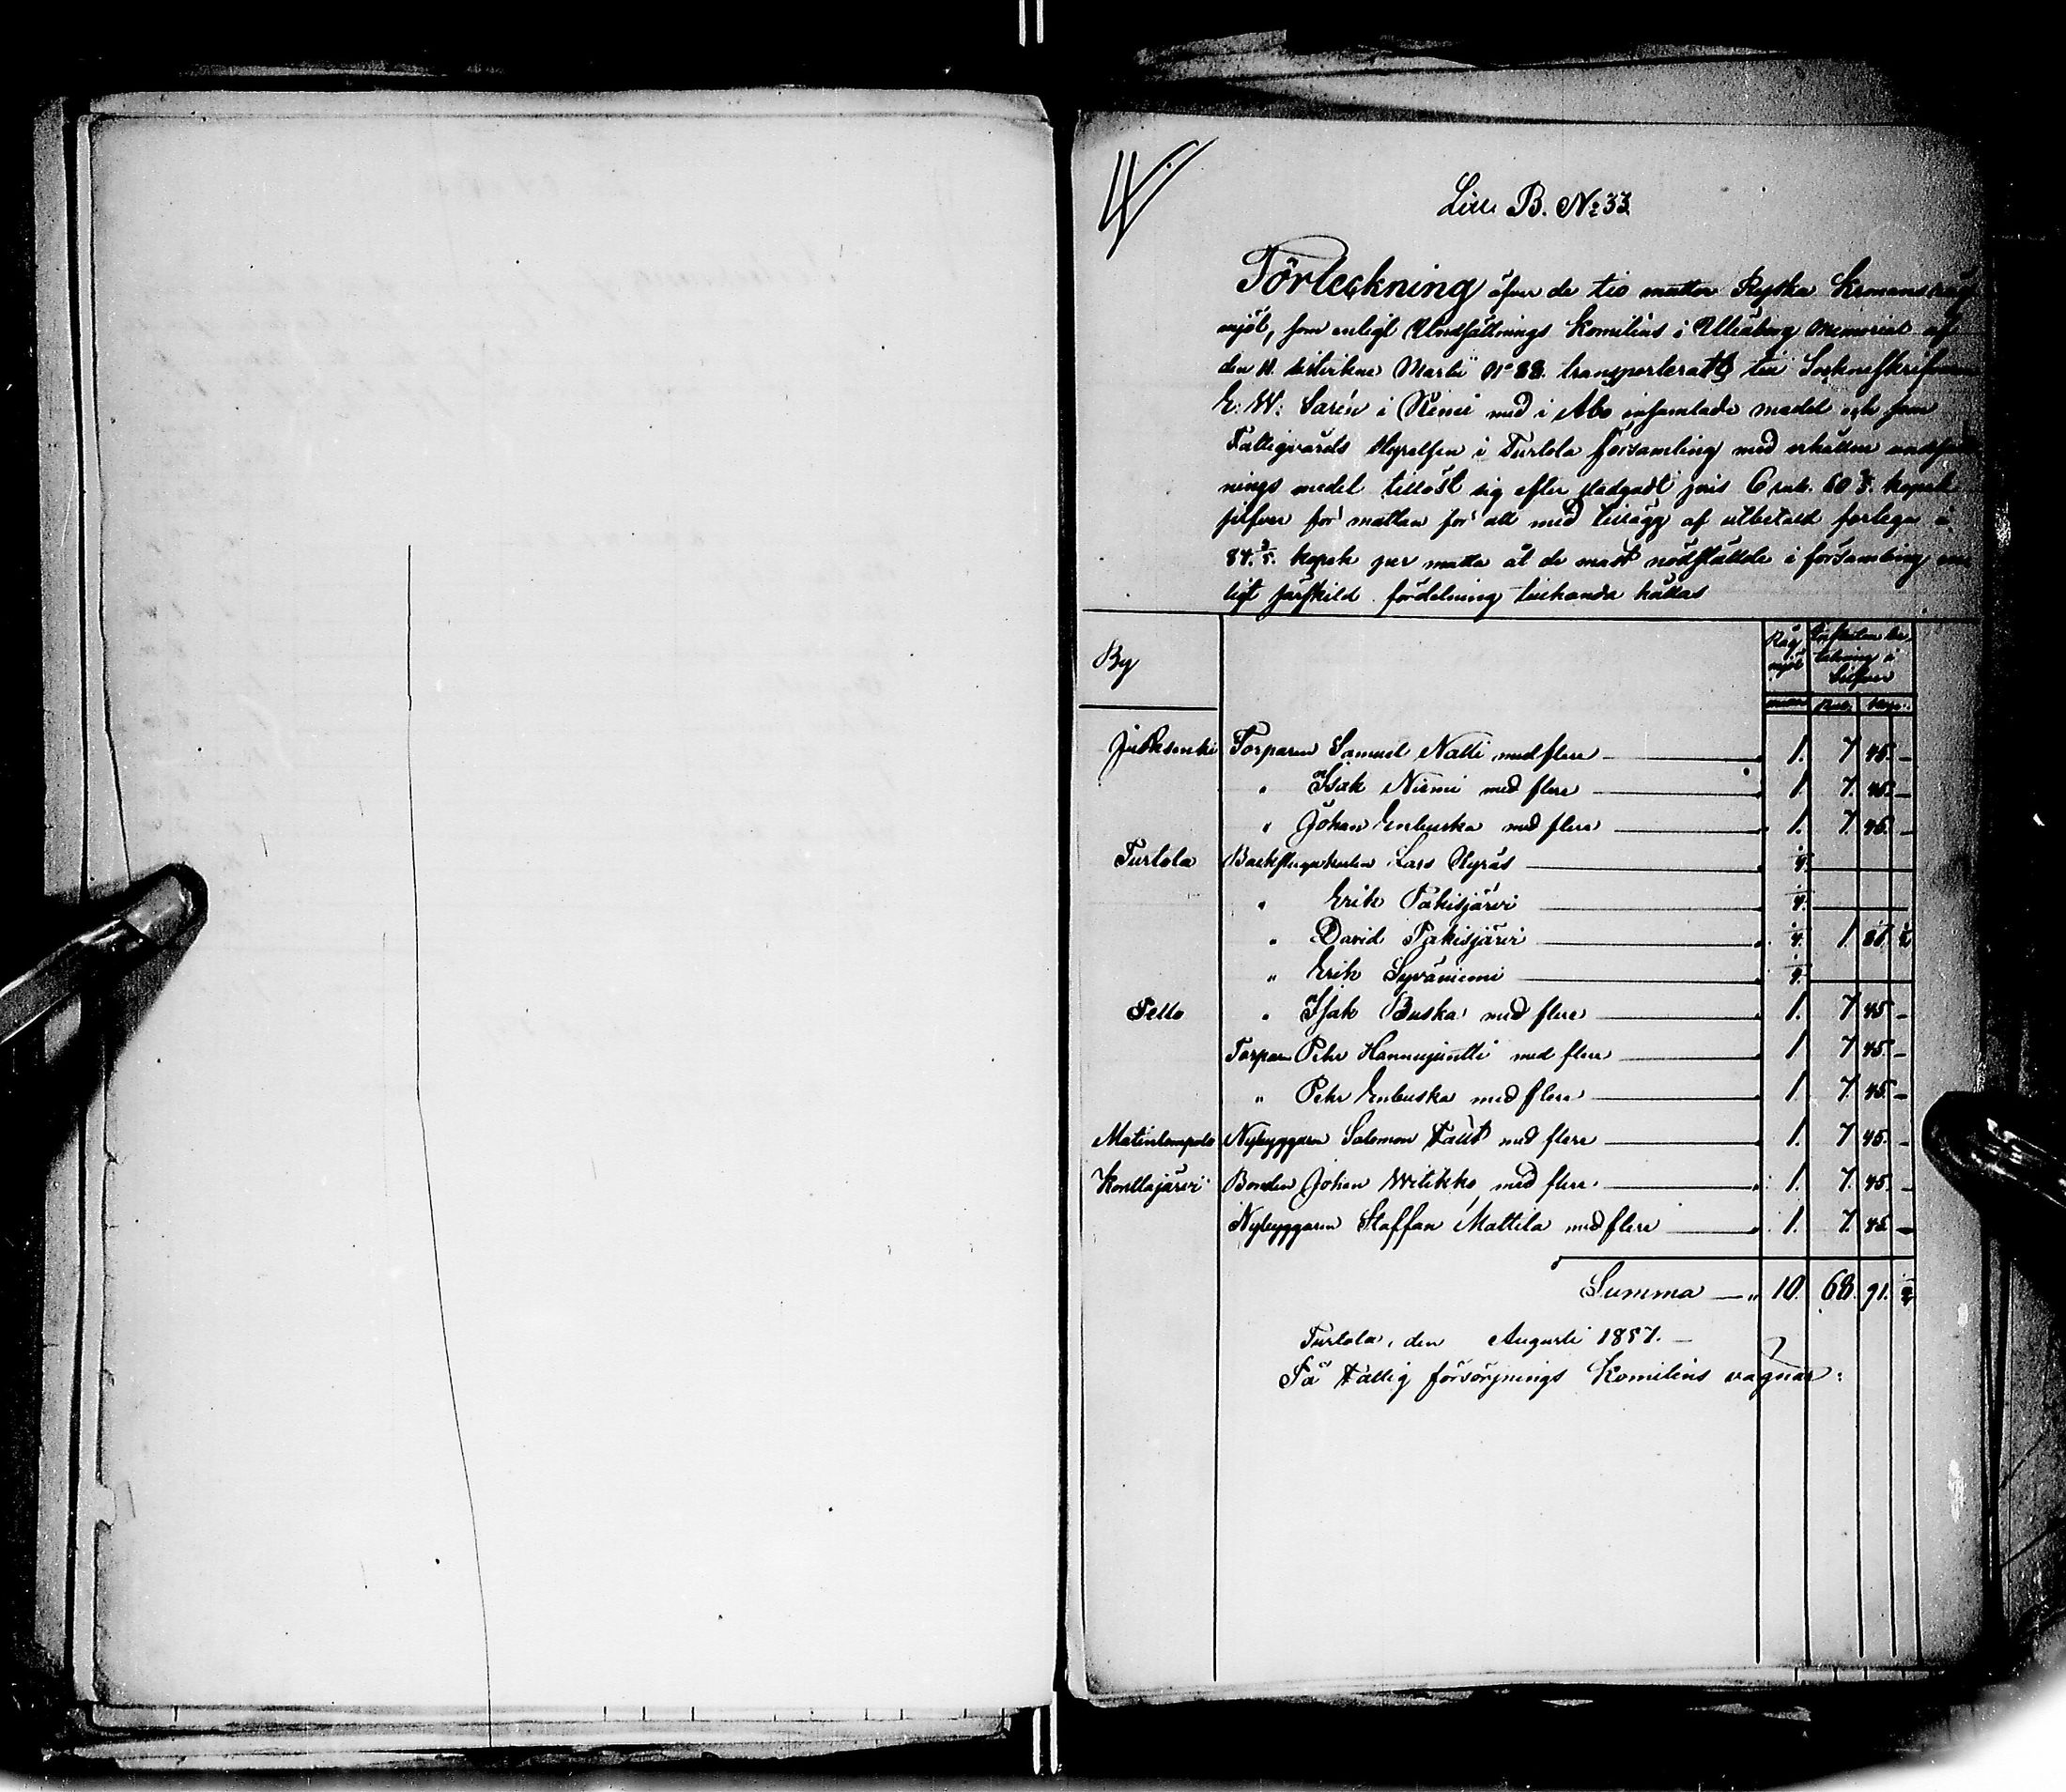 Litt. B. No 33
Förteckning öfver de tio mattor Ryska Kronans råg
mjöl, som enligt Undsättnings Komiténs i Uleåborg Memorial af
den 11. sistvikne Martii No 88. transporterats till Sockneskrifvaren
E. W. Sarén i Kemi med i Åbo insamlade medel och som
Fattigvårds Styrelsen i Turtola församling med erhållne undsätt
nings medel tillöst sig efter stadgadt pris 6 rub. 60 kopek
silfver för mattan för att med tillägg af utbetald förlega à
84 3/5. kopek per matta åt de mäst nödställde i församling en
ligt särskild fördelning tillhanda hållas
By
Råg
mjöl
betalning i
Silfver
mattor Rub. Kop.
Juoksenki Torparen Samuel Natti med flere 1. 7 45. –
" Isak Niemi med flere 1 7. 45. –
" Johan Enbuska med flere 1. 7. 45. –
Turtola Lars Nyrös 1/4.
" Erik Pakisjärvi 1/4.
" David Pakisjärvi 1/4. 1 81 1/2
" Erik Syväniemi 1/4.
Pello " Isak Buska med flere 1. 7 45 –
Torparen Pehr Hannujuntti med flere 1 7 45. –
" Pehr Enbuska med flere 1 7. 45. –
Matinlompolo Nybyggaren Salomon Fält med flere 1. 7 45. –
Konttajärvi Bonden Johan Wilikko med flere 1. 7. 45. –
Nybyggaren Staffan Mattila med flere 1. 7. 45. –
Summa 10. 68. 91.
Turtola, den Augusti 1857. –
På Fattig försörjnings Komiténs vägnar: